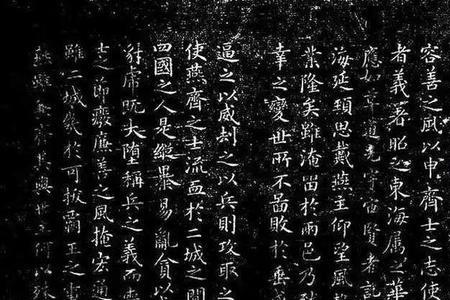 容善之風以申齊士之志使
者義著昭之東海屬之華
應如草道光宇宙賢者託
海延頸思戴燕主仰望風
業隆矣雖淹留於兩邑乃致
幸之變世所不圖敗於垂
逼之以威劫之以兵則攻取之
使燕齊之士流血於二城之間
四國之人是縱暴易亂貪以
豺虎既大墮稱兵之義而喪
士之節廢廉善之風掩宏通
雖二城幾於可拔霸王之事
燕雖兼齊其與世主何以殊